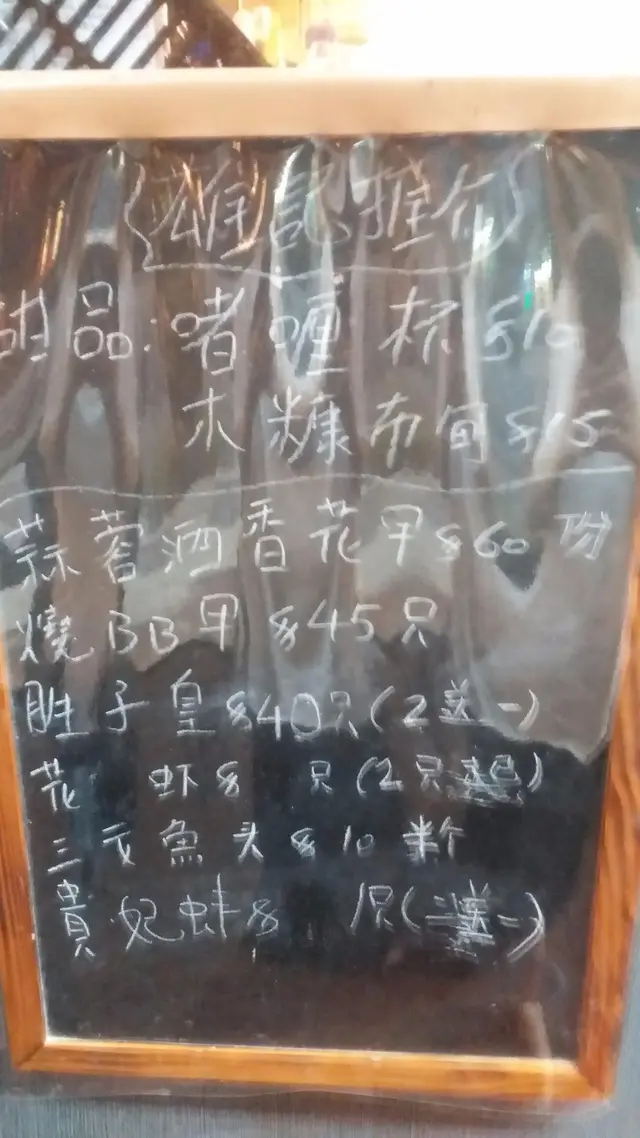 雄記推介
甜品：啫喱杯 $10
木糠布甸 $15
蒜蓉酒香花甲 $60 份
燒BB甲 $45 只
胜子皇 $40只(2送一)
花 虾 $ 只(2只起)
三文魚头 $10 半个
貴妃蚌 $ 只(二送一)